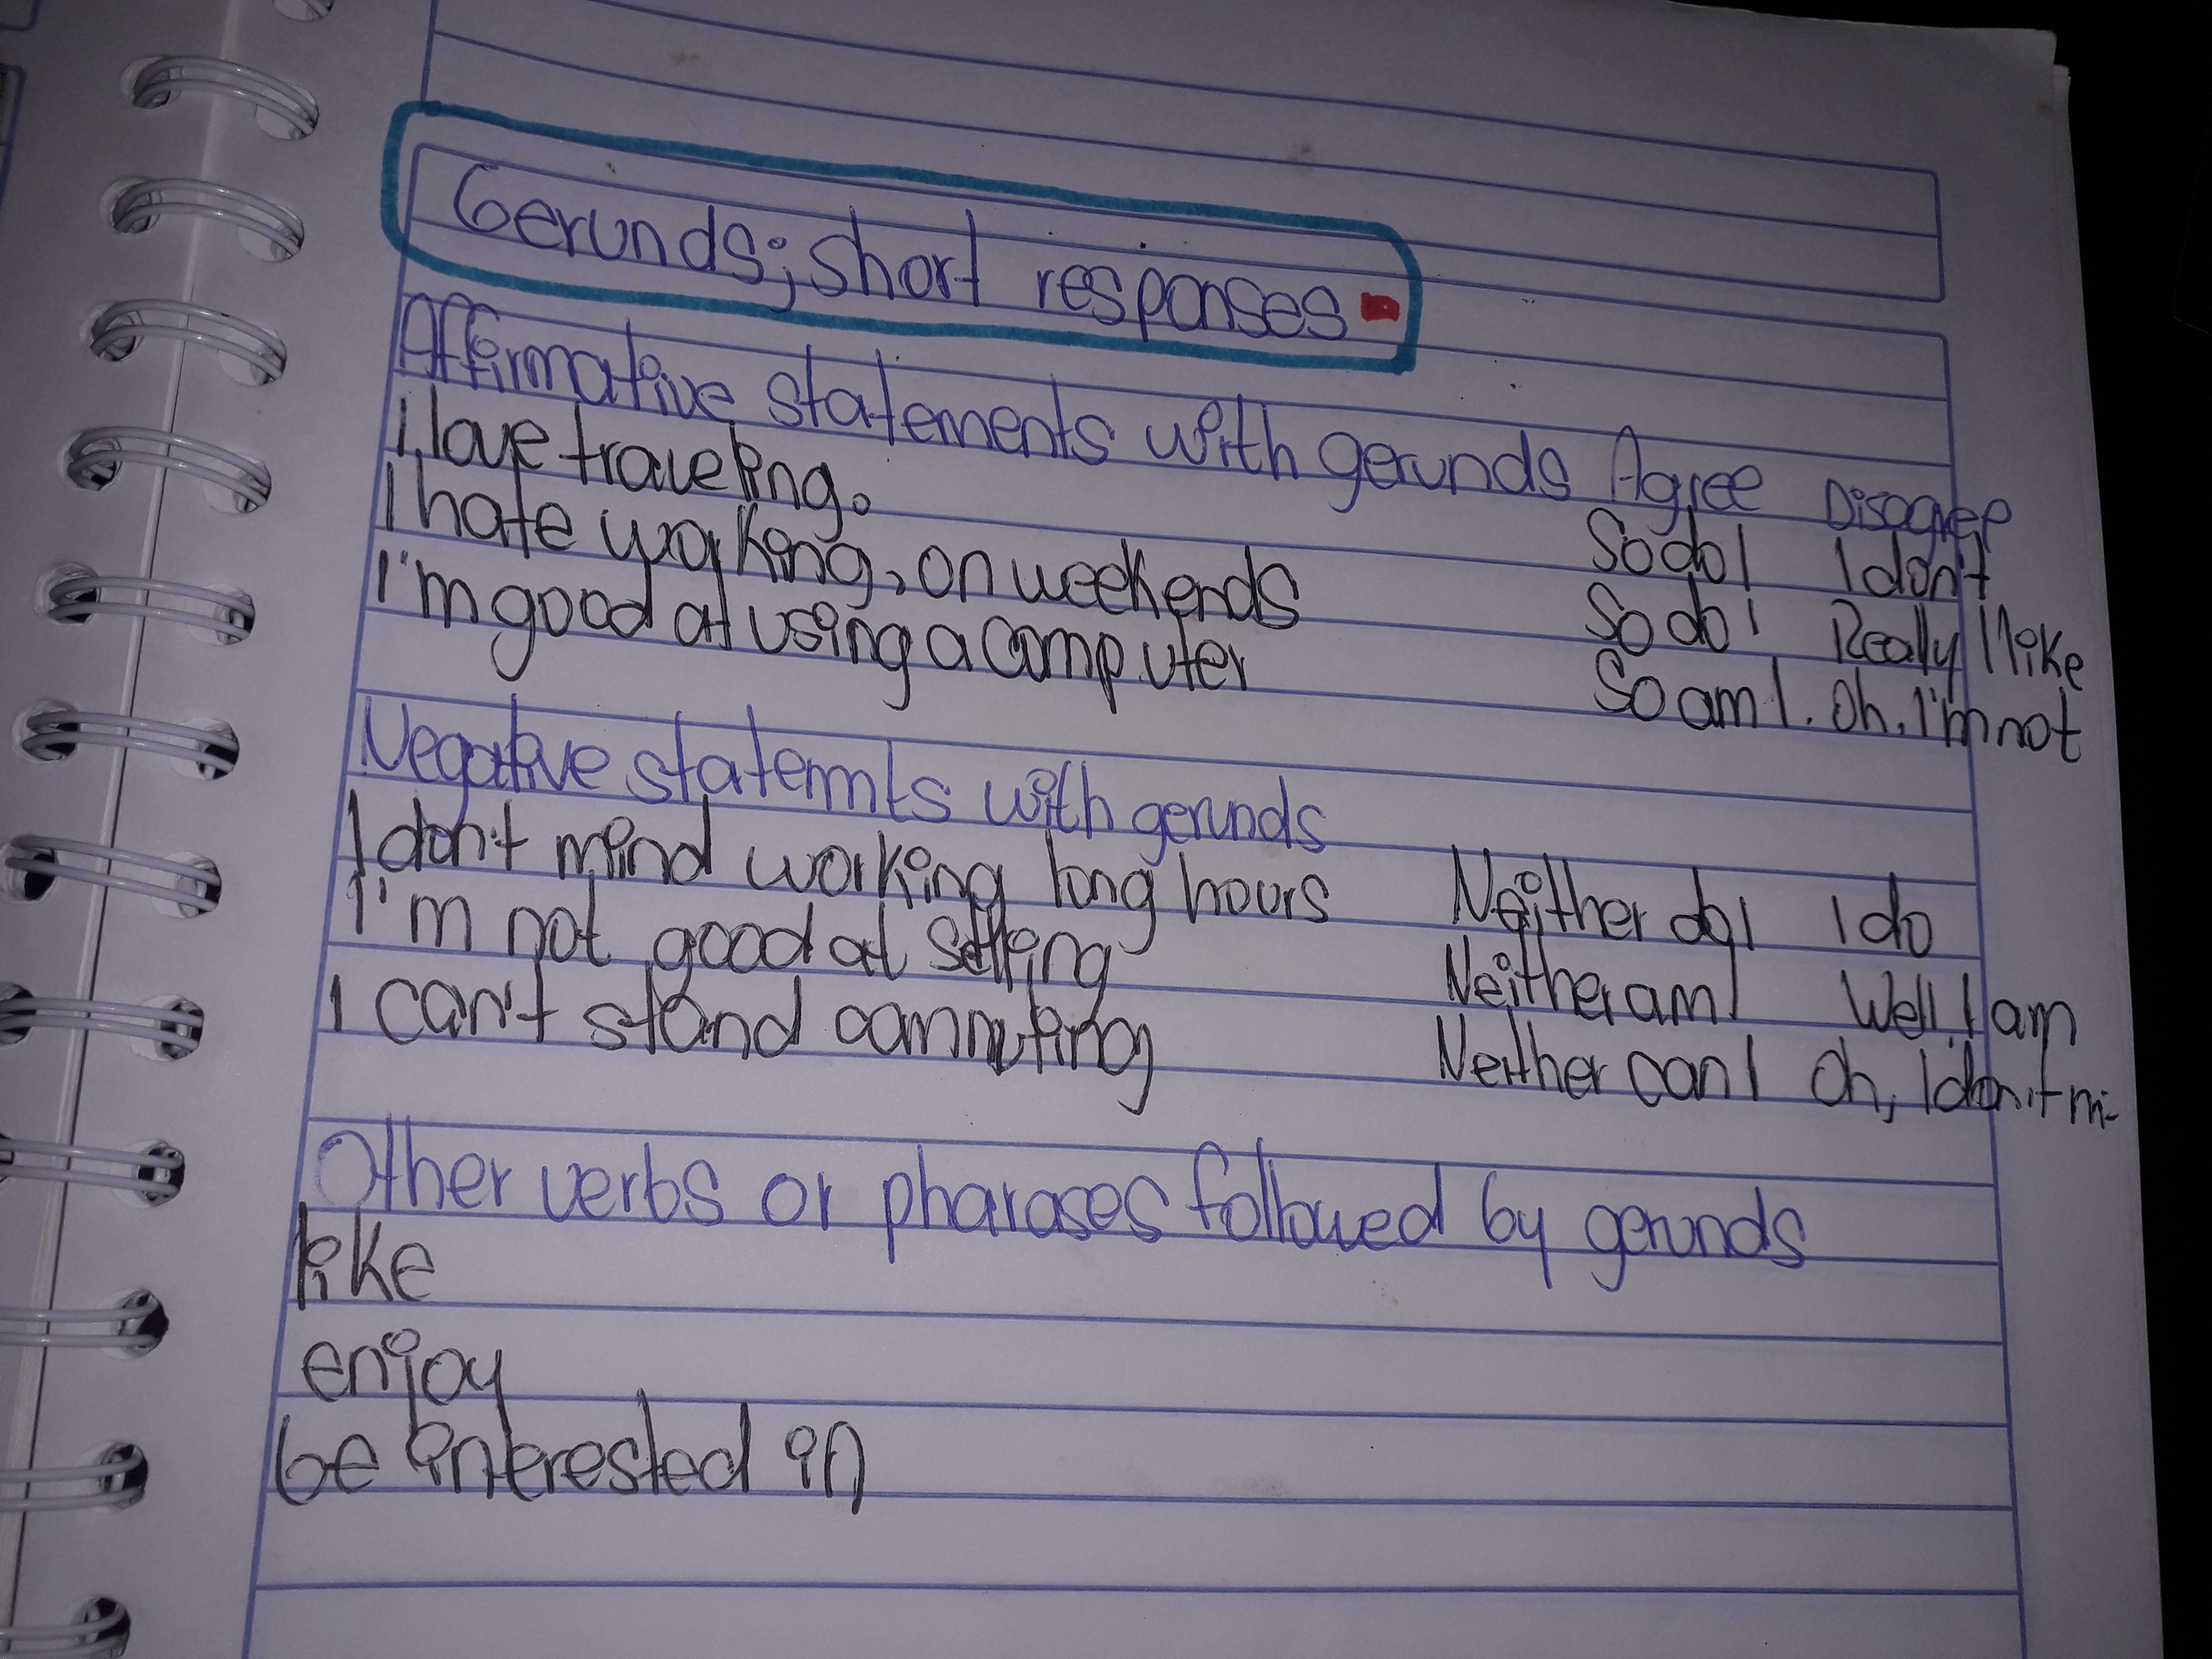 Gerunds; short responses
Affirmative statements with gerunds Agree Disagree
i love traveling. So do I I don't
I hate working, on weekends So do I Really I like
I'm good at using a computer So am I. Oh, I'm not
Negative statemnts with gerunds
I don't mind working long hours Neither do I I do
I'm not good at selling Neither am I Well I am
I can't stand commuting Neither can I Oh, I don't mi-
Other verbs or pharases followed by gerunds
like
enjoy
be interested in